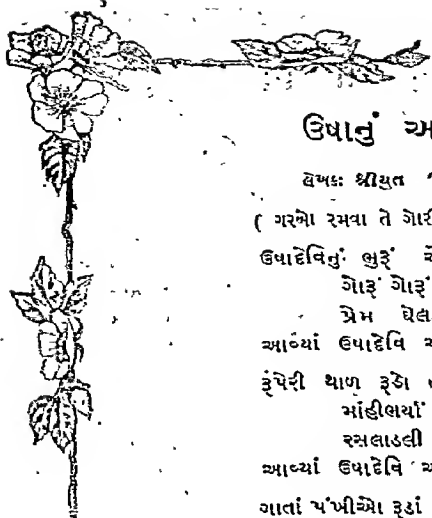 ઉષાનું
લેખકઃ શ્રીયુત
( ગરબો રમવા તે ગોરી
ઉષાદેવિનું ભુરૂં
ગોરૂં ગોરૂં
પ્રેમ ઘેલ
આવ્યાં ઉષાદેવિ
રૂંપેરી થાળ રૂડો
માંહીભર્યાં
રસલાડલી
આવ્યાં ઉષાદેવિ
ગાતાં પંખીઓ રૂડાં